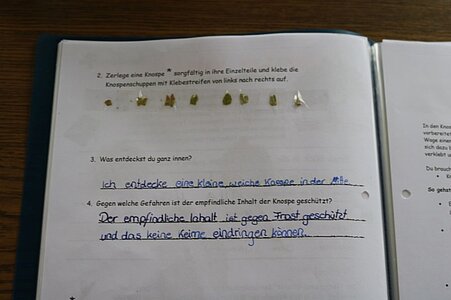 2. Zerlege eine Knospe * sorgfältig in ihre Einzelteile und klebe die
Knospenschuppen mit Klebestreifen von links nach rechts auf.
3. Was entdeckst du ganz innen?
Ich entdecke eine kleine, weiche Knospe in der Mitte
4. Gegen welche Gefahren ist der empfindliche Inhalt der Knospe geschützt?
Der empfindliche Inhalt ist gegen Frost geschützt
und das keine Keime eindringen können.
*
In den Kno
vorbereitet
Wage einen
sich dazu
verklebt u
Du brauch
•
So gehst
•
•